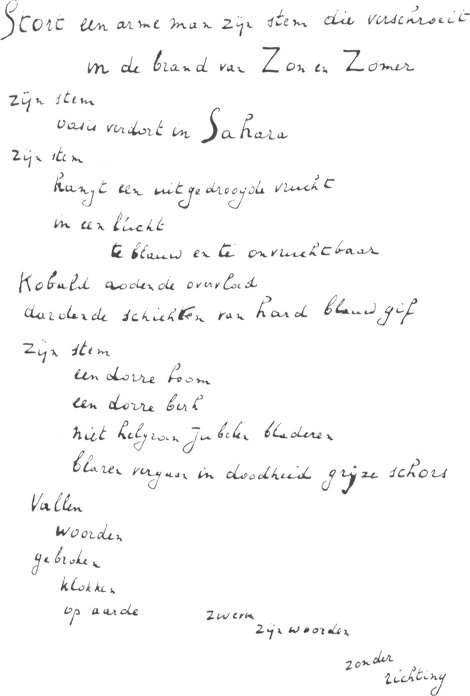 Stort een arme man zijn stem die verschroeit
in de brand van Zon en Zomer
zijn stem
oasis verdort in Sahara
zijn stem
hangt een uitgedroogde vrucht
in een lucht
te blauw en te onvruchtbaar
Kobald dodende overvloed
dardende schichten van hard blauw gif
zijn stem
een dorre boom
een dorre berk
niet helgroen jubelen bladeren
blaren vergaan in doodheid grijze schors
Vallen
woorden
gebroken
klokken
op aarde
zwerm
zijn woorden
zonder
richting